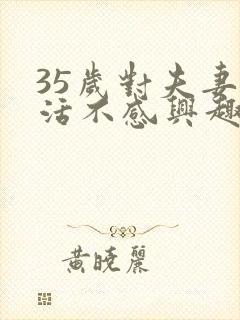 35歲對夫妻
活不感興趣
黃曉麗